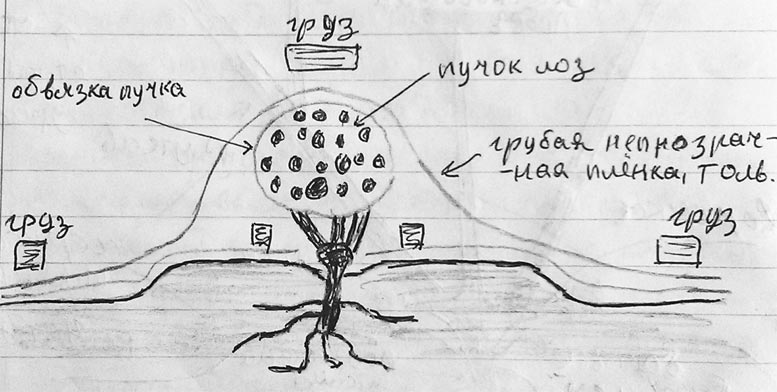 груз
обвязка пучка
пучок лоз
грубая непрозрач-
-ная плёнка, толь.
груз
груз